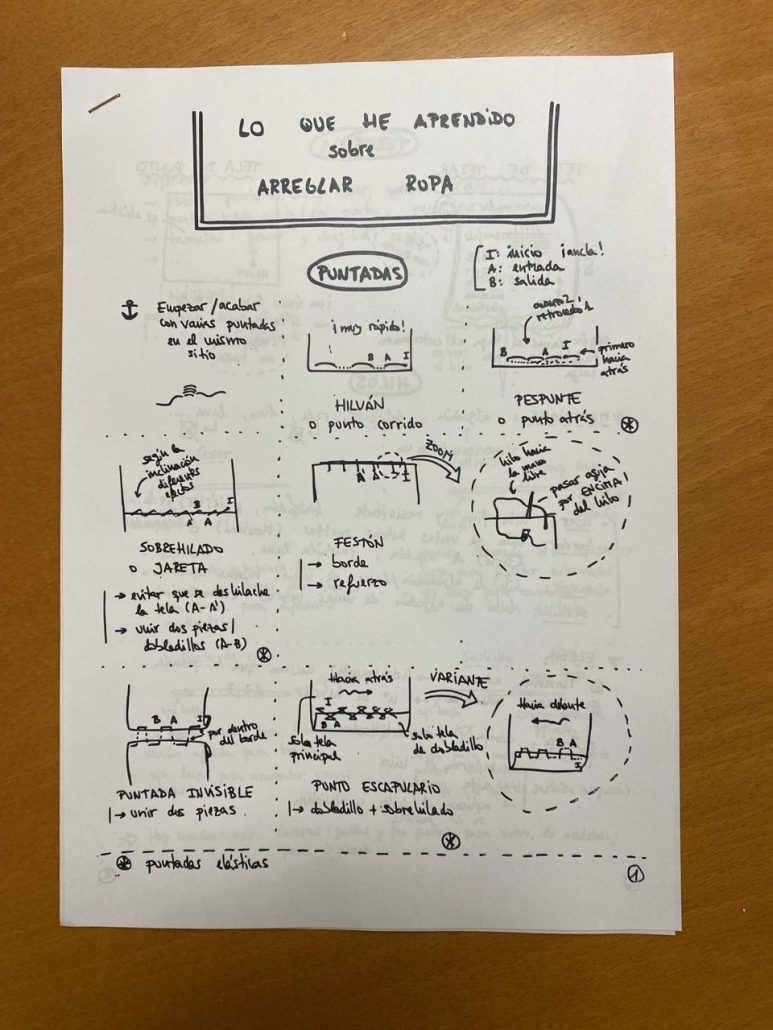 LO QUE HE APRENDIDO
sobre
ARREGLAR ROPA
PUNTADAS
I: inicio ¡ancla!
A: entrada
B: salida
Empezar/acabar
con varias puntadas
en el mismo
sitio
¡muy rápido!
B A I
HILVÁN
o punto corrido
avanzo 2,
retrocedo 1
B A I
primero
hacia
atrás
PESPUNTE
o punto atrás
según la
inclinación
diferentes
efectos
B I
A' A
SOBREHILADO
o JARETA
→ evitar que se deshilache
la tela (A-A')
→ unir dos piezas/
dobladillos (A-B)
A' A I
ZOOM
FESTÓN
→ borde
→ refuerzo
hilo hacia
la mano
libre
pasar aguja
por ENCIMA
del hilo
B A I
por dentro
del borde
PUNTADA INVISIBLE
→ unir dos piezas
Hacia atrás
I
B A
solo tela
principal
solo tela
de dobladillo
PUNTO ESCAPULARIO
→ dobladillo + sobrehilado
VARIANTE
Hacia delante
B A
I
puntadas elásticas
1